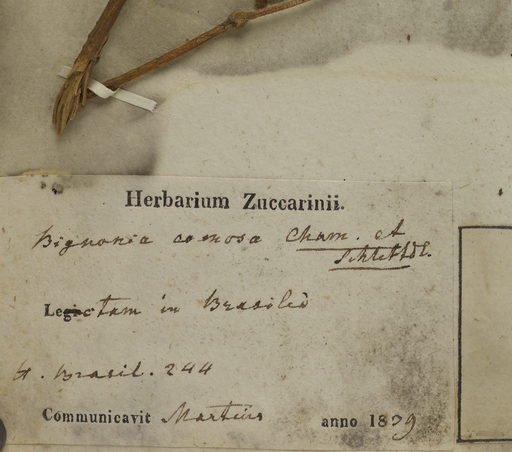 Herbarium Zuccarinii.
Bignonia comosa Cham. et
Schlettdl.
Legi ctam in Brasilia
H. Brasil. 244
Communicavit Martius anno 1839